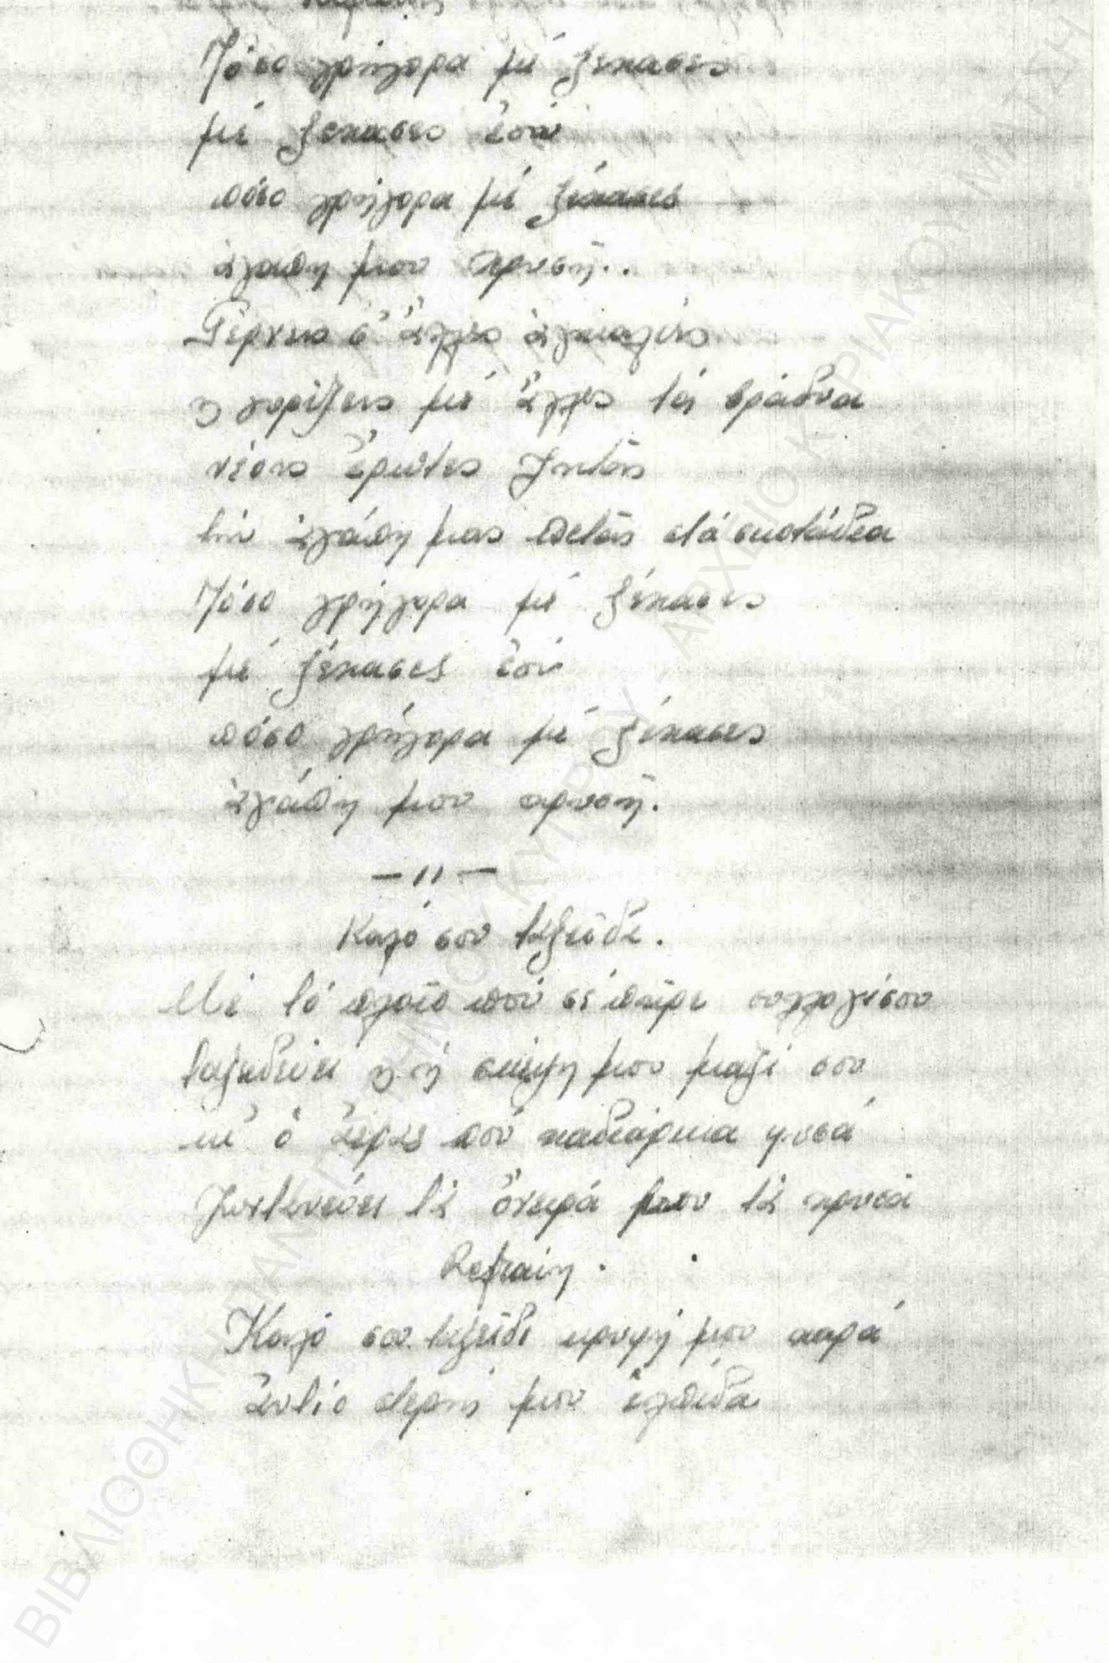 Πόσο γρήγορα μέ ξέχασες
μέ ξέχασες ἐσύ
πόσο γρήγορα μέ ξέχασες
ἀγάπη μου χρυσῆ..
Γέρνεις σ' ἄλλες ἀγκαλιές
γυρίζεις μέ ἄλλες τά βράδυα
νέους ἔρωτες ζητᾶς
τήν ἀγάπη μας πετᾶς στά σκοτάδια
Πόσο γρήγορα μέ ξέχασες
μέ ξέχασες ἐσύ
πόσο γρήγορα μέ ξέχασες
ἀγάπη μου χρυσῆ.
— 11 —
Καλό σου ταξεῖδι.
Μέ τό πλοῖο πού σέ πῆρε συλλογίσου
ταξειδεύει ἡ σκέψη μου μαζί σου
κι' ὁ ἀέρας πού παθιάρικα φυσᾶ
ζωντανεύει τά ὄνειρά μου τά χρυσά
Refrain.
Καλό σου ταξεῖδι κρυφή μου χαρά
ἀντίο στερνή μου ἐλπίδα
ΒΙΒΛΙΟΘΗΚΗ ΠΑΝΕΠΙΣΤΗΜΙΟΥ ΚΥΠΡΟΥ ΑΡΧΕΙΟ ΚΥΡΙΑΚΟΥ ΜΑΤΣΗ